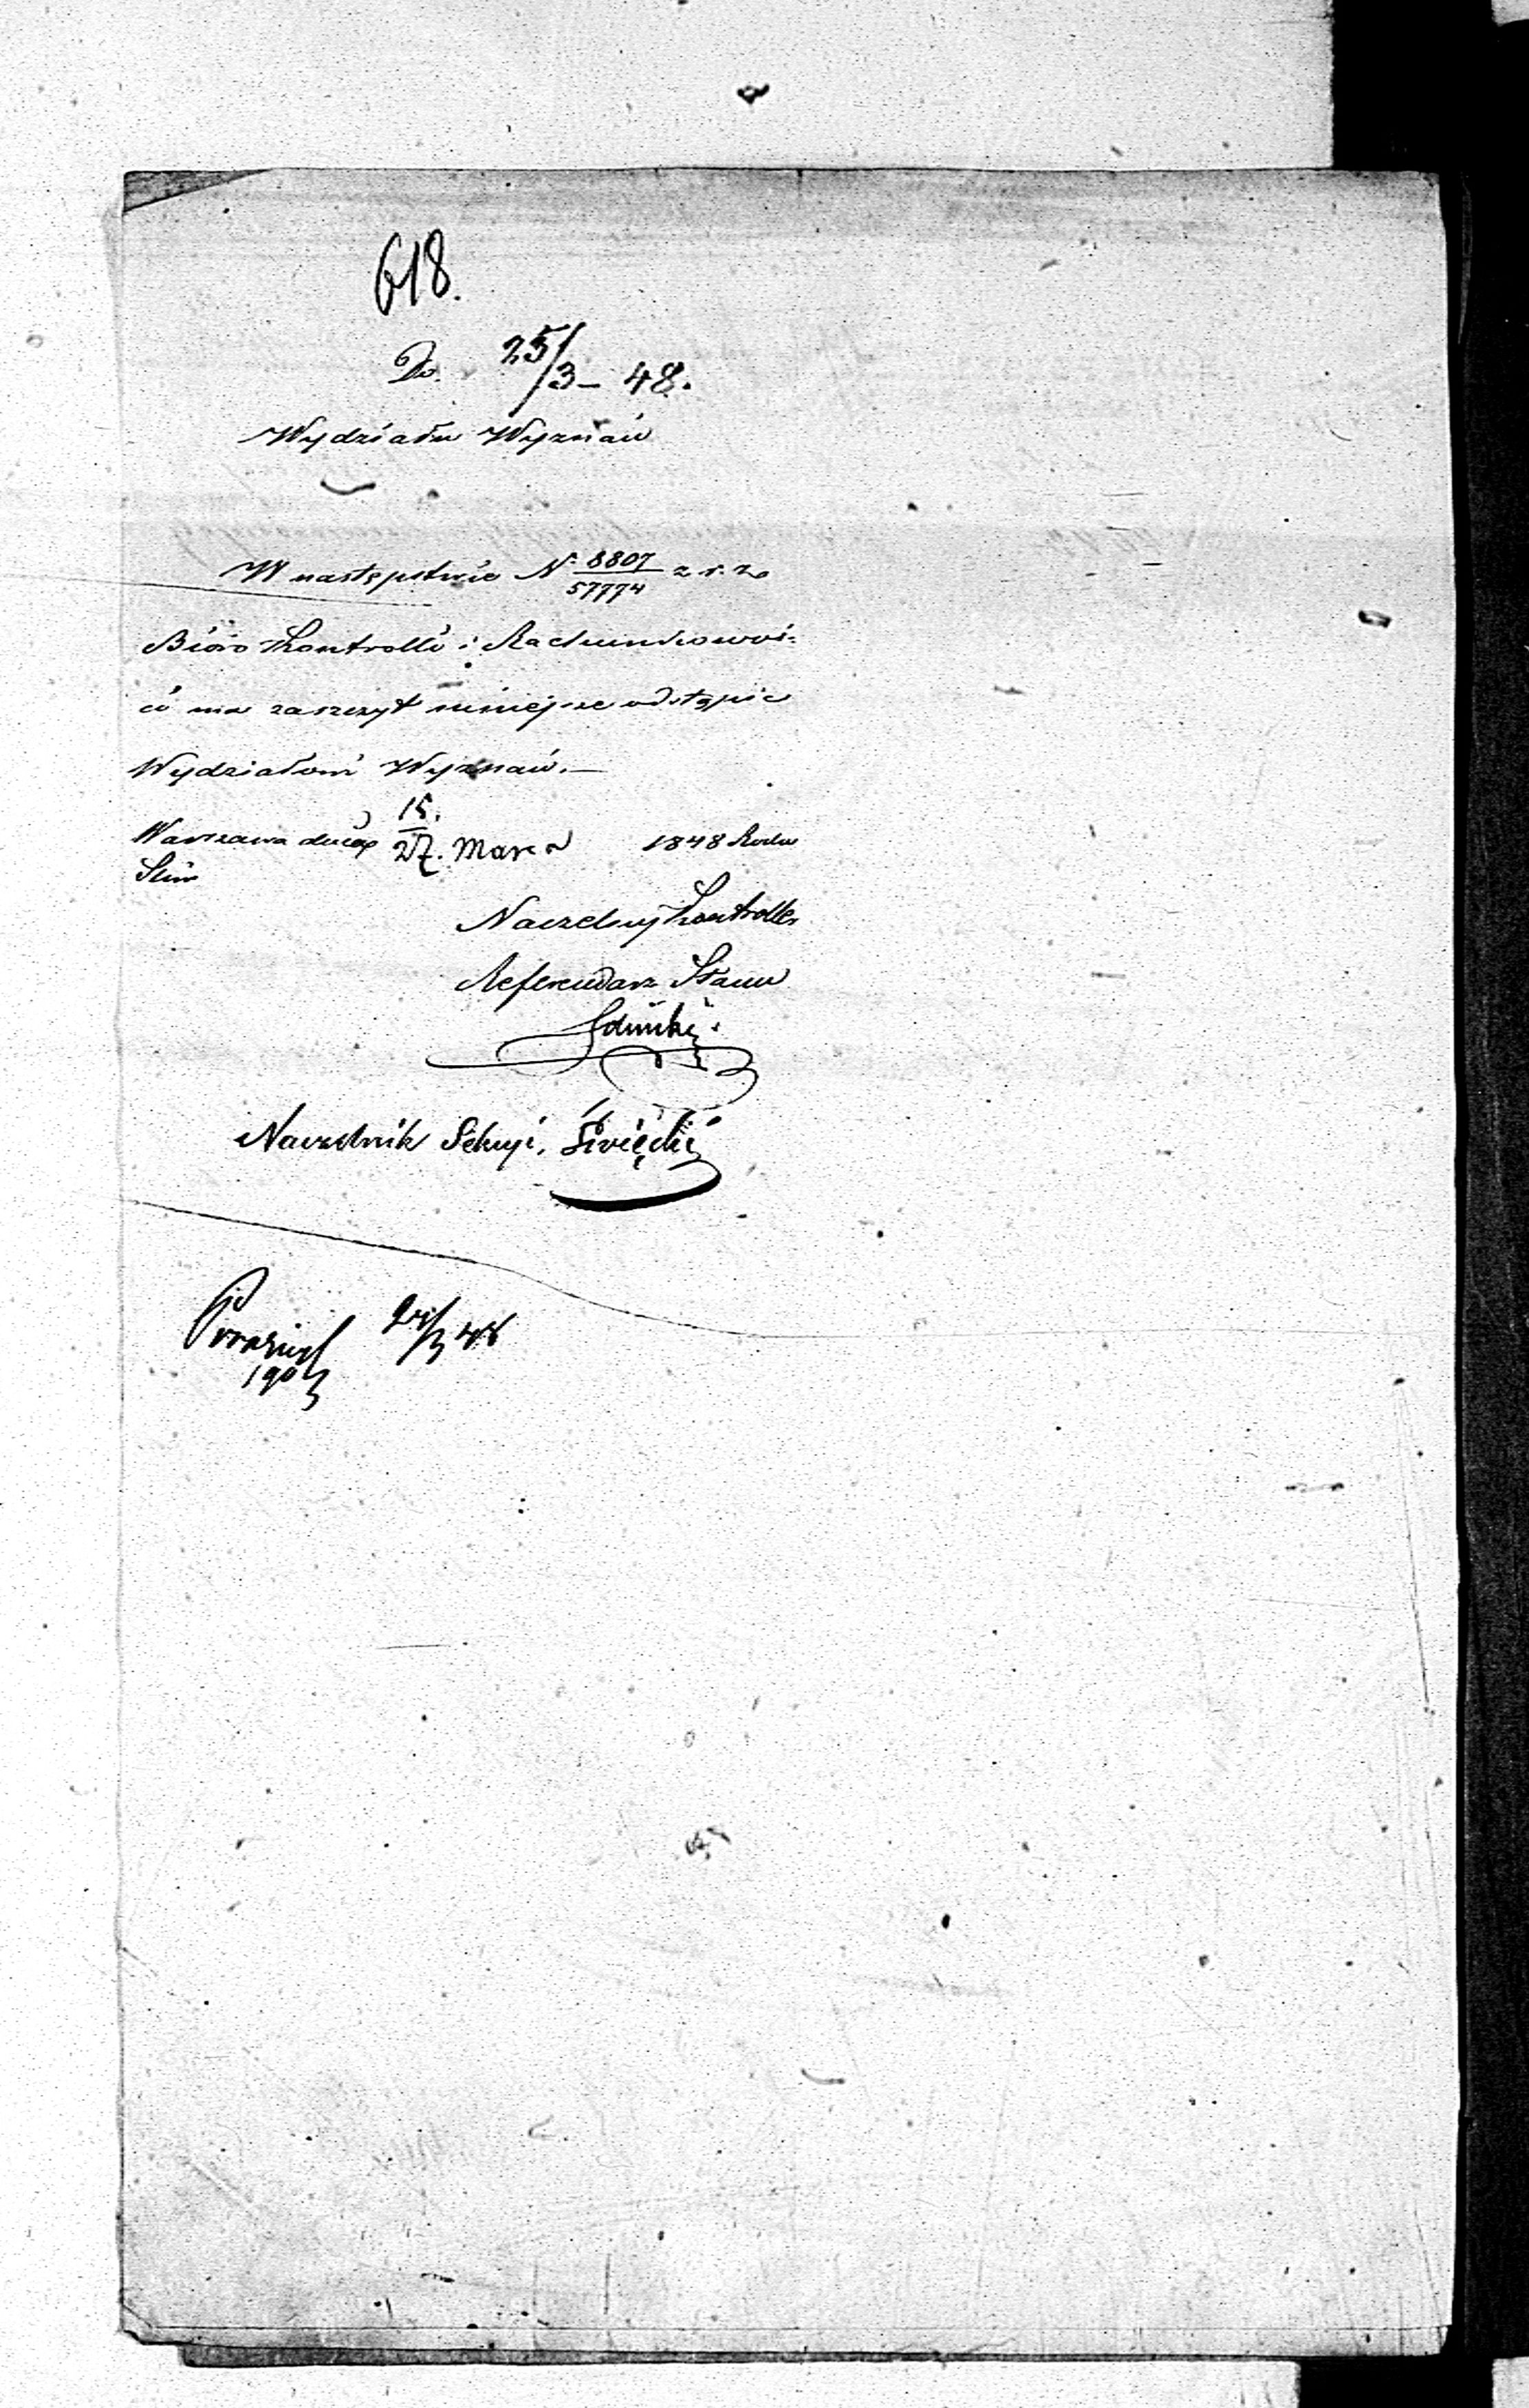 618.
Do. 25/3 - 48.
Wydziału Wyznań
W następstwie N. 8807/57774 z r. z.
Bióro Kontrolli i Rachunkowoś=
ci ma zaszczyt niniejsze odstąpić
Wydziałowi Wyznań. —
Warszawa dnia 15./27. Marca 1848 Roku
Naczelny Kontroller
Referendarz Stanu
Naczelnik Sekcyi, Święcki
48
190